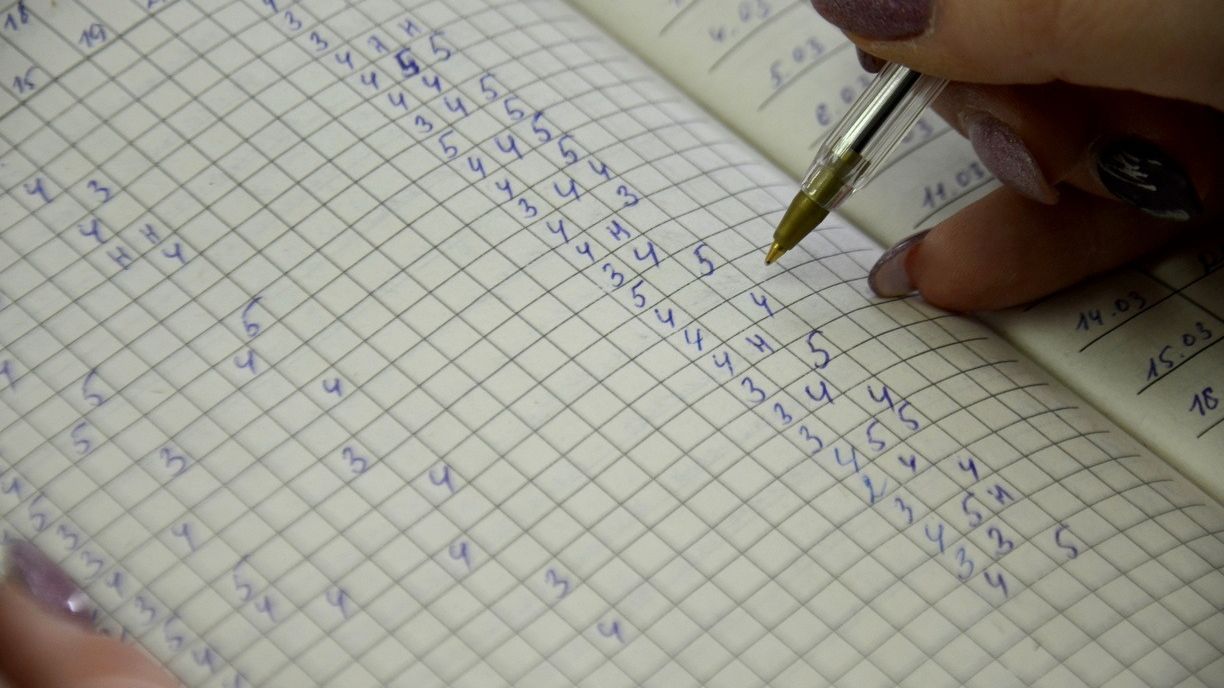 18
19
15
4
3
3
4 н н
4 5 5
4 4
3 4 5
5 5
4 4 5
4 5
3 4 4
4 3
4 н
3 4
5 5
4
4 4
4 н
3 5
3 4
3 4
4 5 5
2 4
3 4
4 5 н
3 3
4 5
4 3
4 н
н 4
5
4 4
5
5 3
3 4
4 4
5 4
3
4
5
3
3
4
3
5
4
4.03
5.03
11.03
14.03
15.03
18